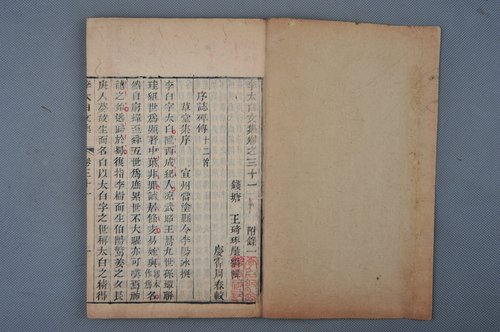 李太白文集卷之三十一
附錄一
錢塘 王琦琢崖編輯
慶霄周春較
序誌碑傳十二首
草堂集序 宣州當塗縣令李陽冰撰
李白字太白隴西成紀人涼武昭王暠九世孫蟬聯
珪組世為顯著中葉非罪謫居條支易姓與名
然自窮蟬至舜五世為庶累世不大曜亦可歎焉神
龍之始逃歸於蜀復指李樹而生伯陽驚姜之夕長
庚入夢故生而名白以太白字之世稱太白之精得
李太白文集
卷三十一
一